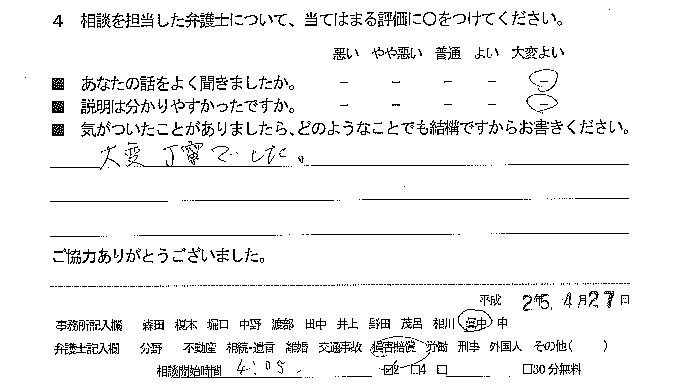 4 相談を担当した弁護士について、当てはまる評価に○をつけてください。
悪い やや悪い 普通 よい 大変よい
■ あなたの話をよく聞きましたか。 － － － － －
■ 説明は分かりやすかったですか。 － － － － －
■ 気がついたことがありましたら、どのようなことでも結構ですからお書きください。
大変 丁寧でした。
ご協力ありがとうございました。
平成 25年 4月27日
事務所記入欄 森田 榎本 堀口 中野 渡部 田中 井上 野田 茂呂 相川
弁護士記入欄 分野 不動産 相続・遺言 離婚 交通事故 損害賠償 労働 刑事 外国人 その他（ ）
相談開始時間 4:05 □30分無料